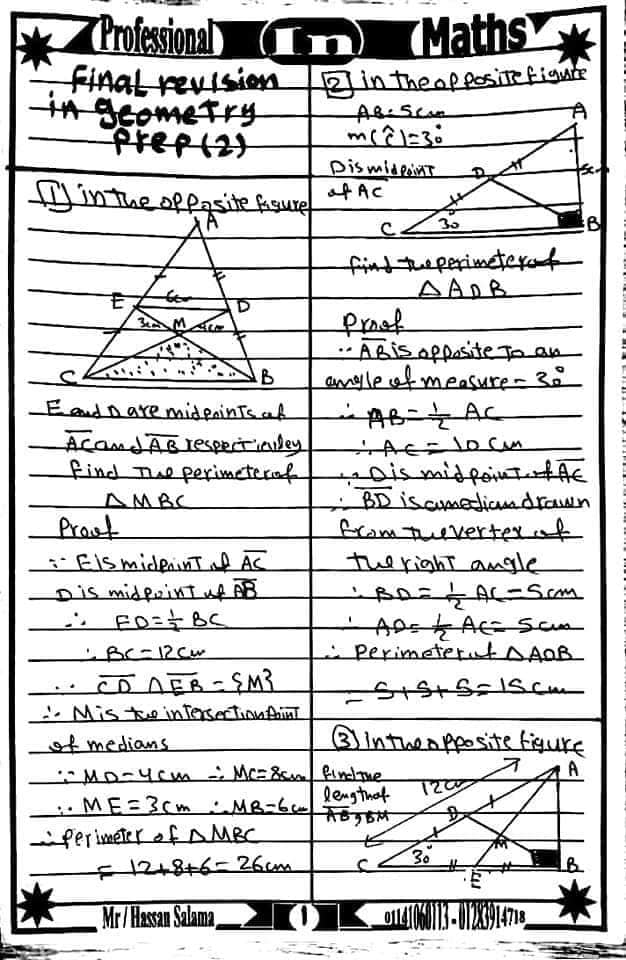 Professional
Im
Maths
Final revision
in geometry
prep (2)
(1) in the opposite figure
A
E
6cm
D
3cm
M
4cm
C
B
E and D are midpoints of
AC and AB respectivley
find the perimeter of
Δ MBC
Proof
∵ E is midpoint of AC
D is midpoint of AB
∴ ED = ½ BC
∴ BC = 12 cm
∵ CD ∩ EB = {M}
∴ M is the intersection point
of medians
∵ MD = 4cm ∴ MC = 8cm
∵ ME = 3cm ∴ MB = 6cm
∴ perimeter of Δ MBC
= 12+8+6 = 26cm
[2] in the opposite figure
AB = 5cm
m(Ĉ) = 30°
D is midpoint
of AC
A
D
5cm
C
30
B
find the perimeter of
Δ ADB
Proof
∵ AB is opposite to an
angle of measure = 30°
∴ AB = ½ AC
∴ AC = 10 cm
∵ D is midpoint of AC
∴ BD is a median drawn
from the vertex of
the right angle
∴ BD = ½ AC = 5cm
∴ AD = ½ AC = 5cm
∴ Perimeter of Δ ADB
= 5+5+5 = 15cm
(3) In the opposite figure
find the
length of
AB, BM
12cm
A
D
M
C
30°
E
B
Mr / Hassan Salama
1
01141060113 - 01283914718